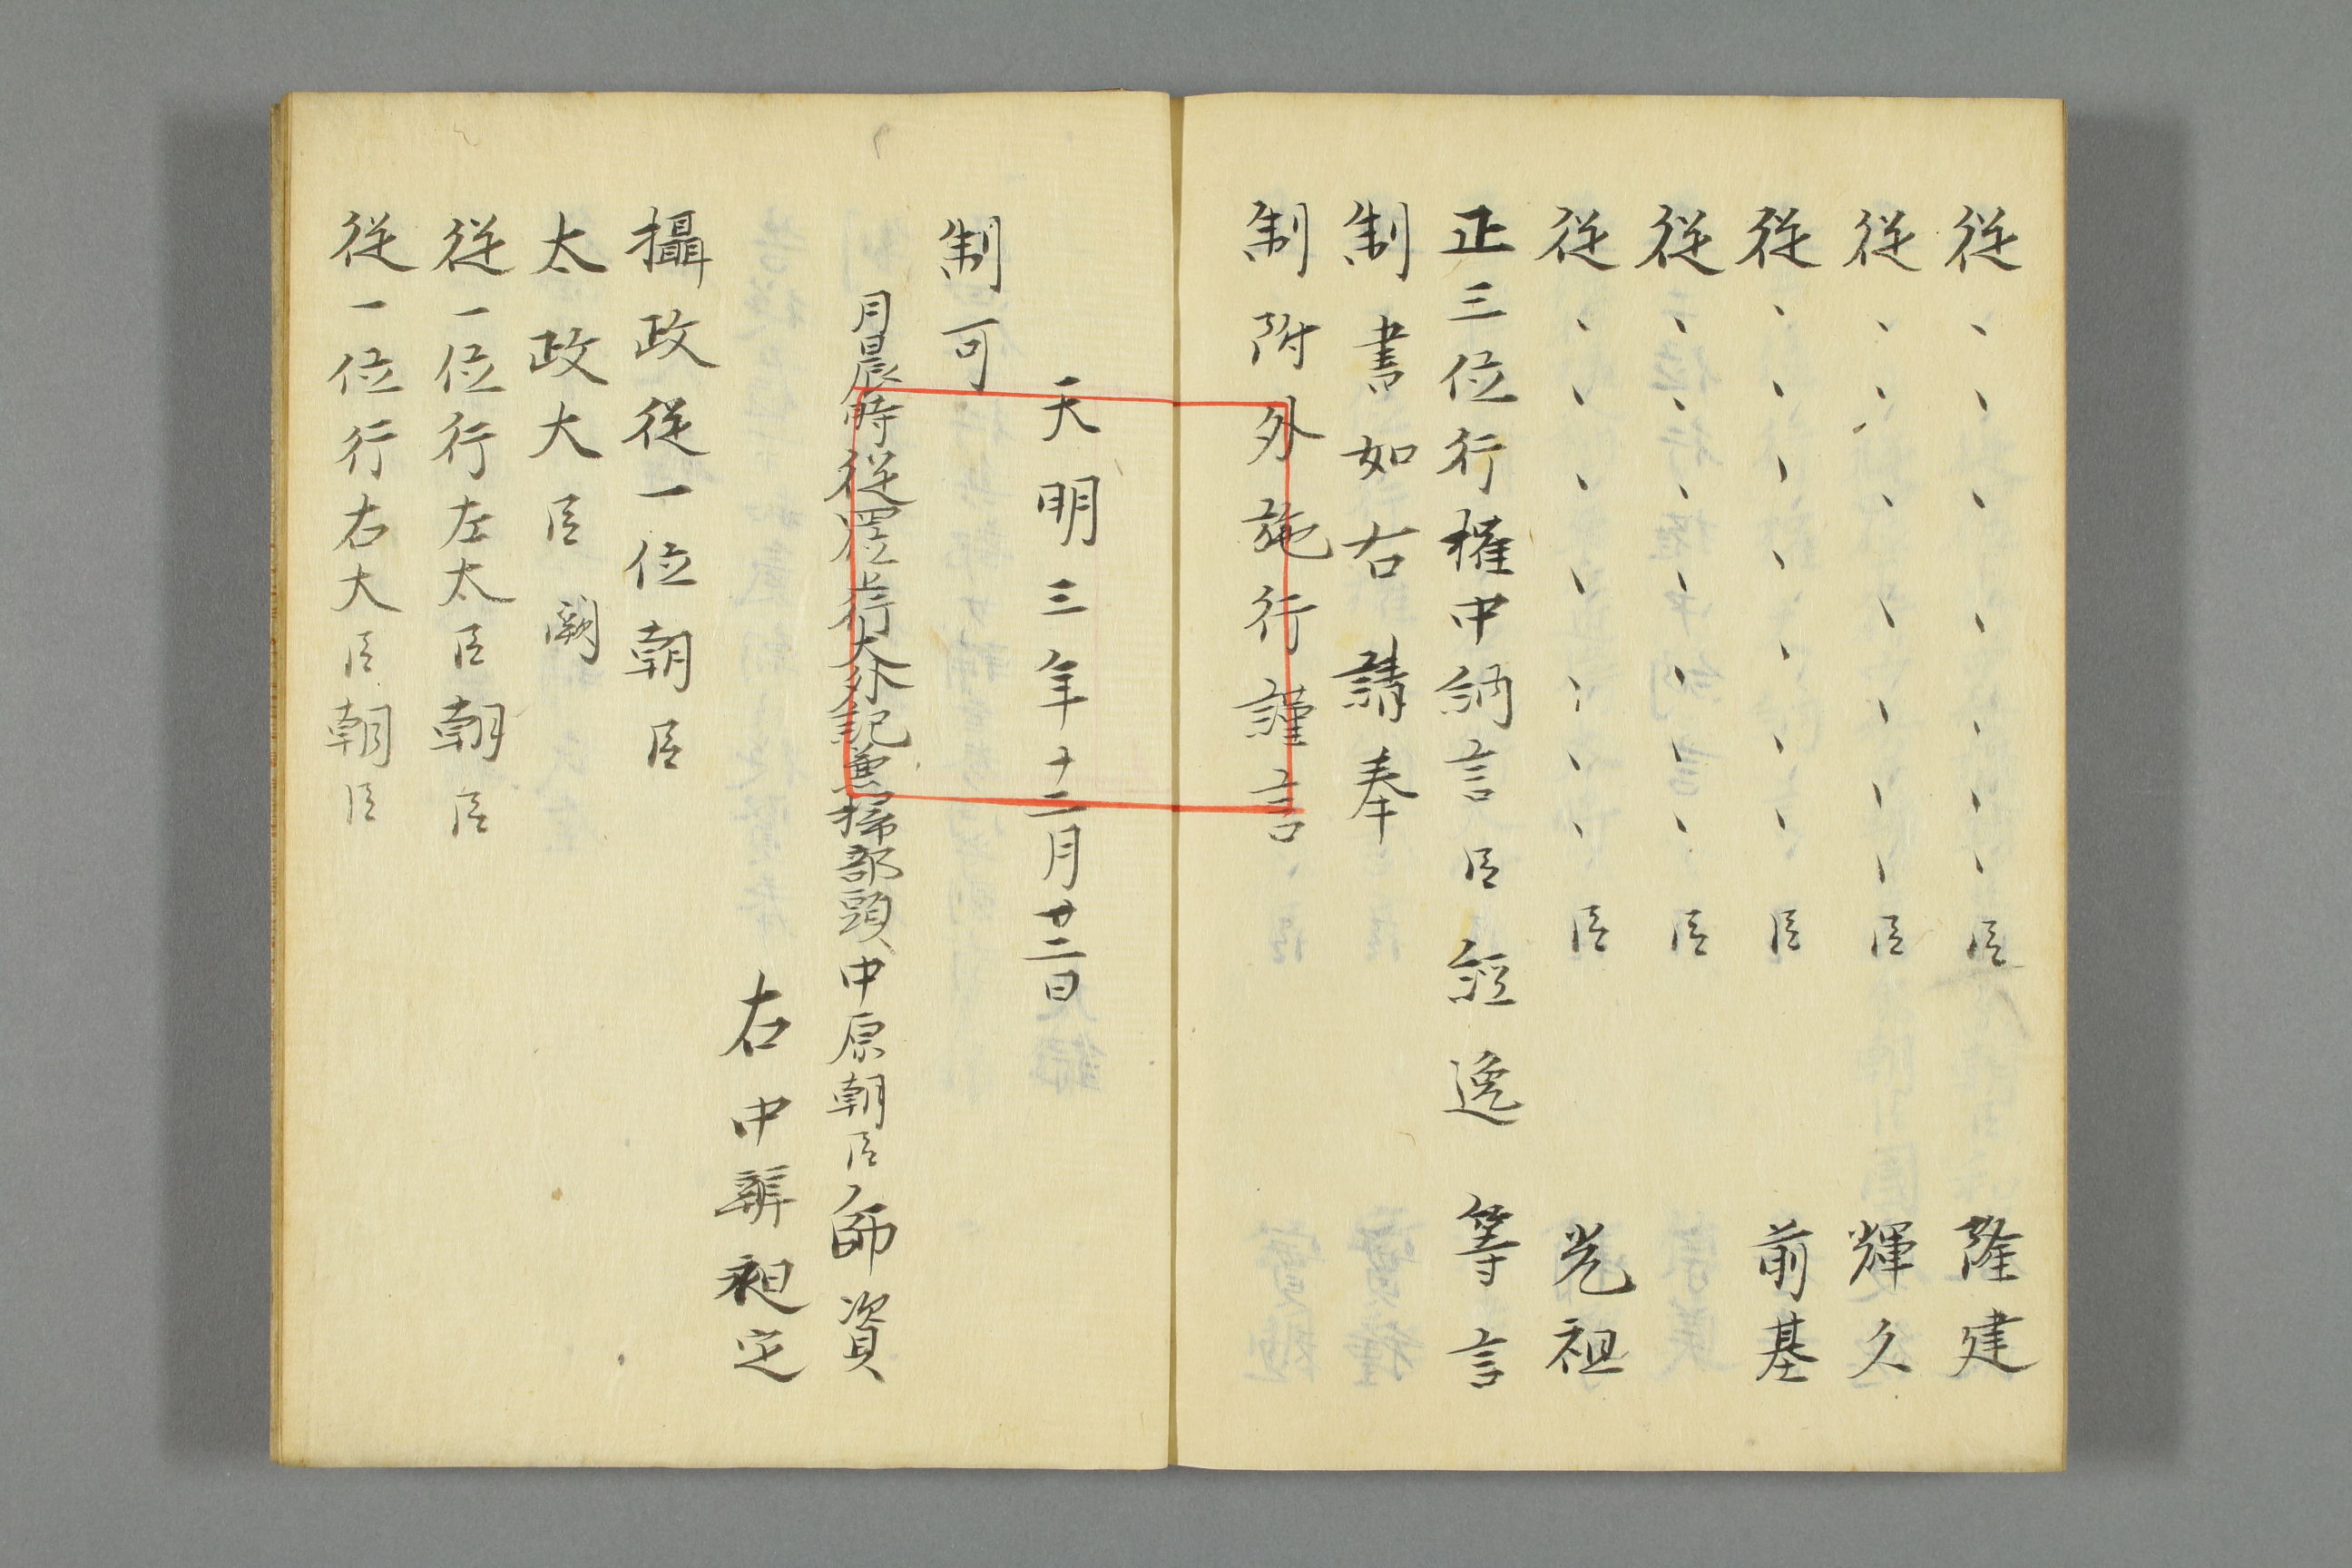 従、、、、、、臣 隆建
従、、、、、、臣 輝久
従、、、、、、臣 前基
従、、、、、、臣
従、、、、、、臣 光祖
正三位行権中納言臣 經逸 等言
制書如右請奉
制附外施行謹言
天明三年十二月廿二日
制可
月日辰時従四位上行大外記兼掃部頭中原朝臣師資
右中辨昶定
攝政従一位朝臣
太政大臣 闕
従一位行左太臣朝臣
従一位行右大臣朝臣